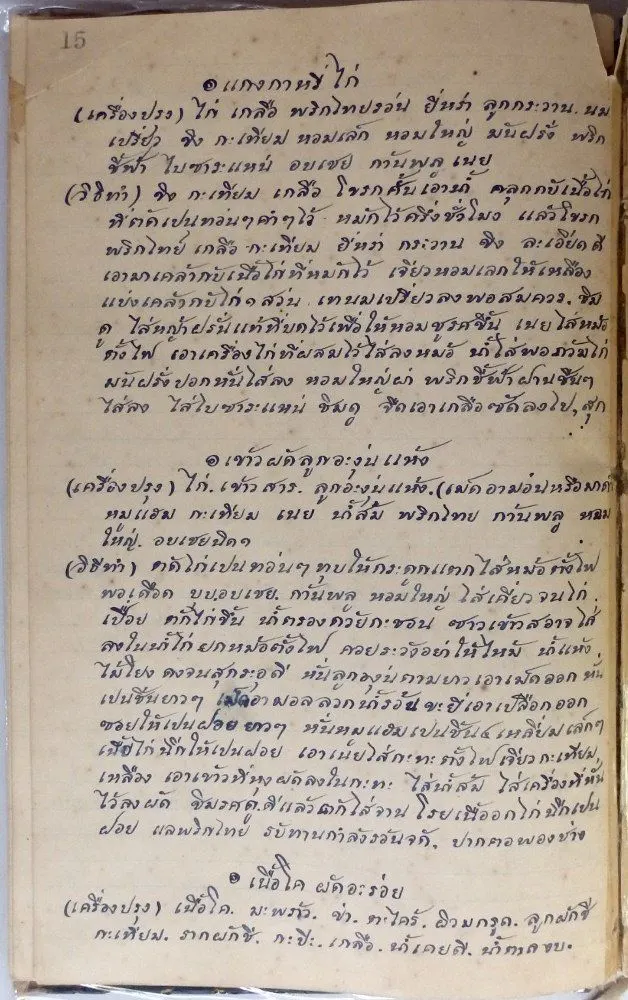 15
๏ แกงกาหรี่ไก่
(เครื่องปรุง) ไก่ เกลือ พริกไทปรอ่น ยี่หร่า ลูกกระวาน. นม
เปรี้ยว ขิง กะเทียม หอมเล็ก หอมใหญ่ มันฝรั่ง พริก
ชี้ฟ้า ใบซาระแหน่ อบเชย กานพลู เนย
(วิธีทำ) ขิง กะเทียม เกลือ โขรกคั้นเอาน้ำ คลุกกับเนื้อไก่
ที่ตัดเปนทอ่นๆคำๆไว้ หมักไว้ครึ่งชั่วโมง แล้วโขรก
พริกไทย เกลือ กะเทียม ยี่หร่า กระวาน ขิง ละเอียดดี
เอามาเคล้ากับเนื้อไก่ที่หมักไว้ เจี่ยวหอมเลกให้เหลือง
แบ่งเคล้ากับไก่ ๑ ส่วน เทนมเปรี้ยวลงพอสมควร. ชิม
ดู ใส่หญ้าฝรั่นแท้ที่บดไว้เพื่อให้หอมชูรศขึ้น เนยใส่หม้อ
ตั้งไฟ เอาเครื่องไก่ที่ผสมไว้ใส่ลงหม้อ น้ำใส่พอท่วมไก่
มันฝรั่งปอกหั่นใส่ลง หอมใหญ่ผ่า พริกชี้ฟ้าผ่านชิ้นๆ
ใส่ลง ใส่ใบซาระแหน่ ชิมดู จืดเอาเกลือซัดลงไป, สุก
๏ เข้าวผัดลูกองุ่นแห้ง
(เครื่องปรุง) ไก่. เข้าวสาร. ลูกองุ่นแห้ง. (เม็ดอามอ่นหรือ
หมูแฮม กะเทียม เนย น้ำส้ม พริกไทย กานพลู หอม
ใหญ่. อบเชยนิด ๑
(วิธีทำ) ตัดไก่เปนทอ่นๆ ทุบให้กระดูกแตก ใส่หม้อตั้งไฟ
พอเดือด บุบอบเชย. กานพลู หอมใหญ่ ใส่เคี่ยวจนไก่
เปื่อย ตักไก่ขึ้น น้ำกรองด้วยกะชอน ซาวเข้าวสอาจใส่
ลงในน้ำไก่ยกหม้อตั้งไฟ คอยระวังอย่าให้ไหม้ น้ำแห้ง
ไม้โยง ดงจนสุกระอุดี หั่นลูกองุ่นตามยาวเอาเม็ดออก หั่น
เปนชิ้นยาวๆ เม็ดอามอลลวกน้ำร้อน ขะยี่เอาเปลือกออก
ซอยให้เปนฝอยยาวๆ หั่นหมูแฮมเปนชิ้น ๔ เหลี่ยมเล็กๆ
เนื้อไก่ฉีกให้เปนฝอย เอาเนยใส่กะทะตั้งไฟเจี่ยวกะเทียม,
เหลือง เอาเข้าวที่หุงผัดลงในกะทะ ใส่น้ำส้ม ใส่เครื่องที่หั่น
ไว้ลงผัด ชิมรศดู, ดีแล้วตักใส่จาน โรยเนื้ออกไก่ฉีกเปน
ฝอย แลพริกไทย รับทานกำลังร้อนจัด. ปากคอพองช่าง
๏ เนื้อโค ผัดอะร่อย
(เครื่องปรุง) เนื้อโค. มะพร้าว. ข่า. ตะไคร้. ผิวมกรูด. ลูกผักชี
กะเทียม. รากผักชี. กะปิ. เกลือ. น้ำเคยดี. น้ำตาล